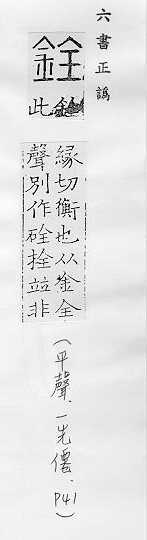 六書正譌
銓
此
緣切衡也从金全
聲別作硂拴竝非
(平聲、一先僊、P41)